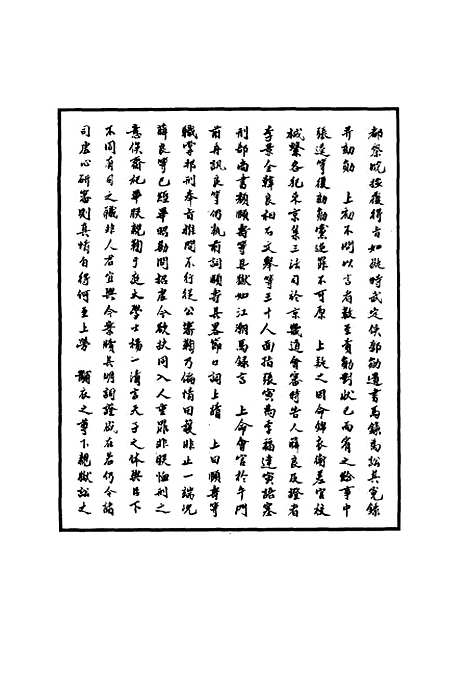 都察院按復得旨如擬時武定侯郭勛遺書馬錄為訟其冤錄
并劾勛　上初不問以言者數至責勛對狀已而宥之給事中
張逵等復劾勛黨逆罪不可原　上疑之因命錦衣衛差官校
械繫各犯來京集三法司於京畿道會審時告人薛良及證者
李景全韓良相石文舉等三十人面指張寅為李福達寅語塞
刑部尚書顏頤壽等具獄如江潮馬錄言　上命會官於午門
前再訊良等仍執前詞頤壽具畧節口詞上請　上曰頤壽等
職掌邦刑奉旨推問不行從公審鞫乃偏情回護非止一端況
薛良等已經畢昭勘問招虛今欲扶同入人重罪非朕恤刑之
意俟齋祀畢朕親鞫于庭大學士楊一清言天子之體與臣下
不同有司之職非人君宜與今案牘具明詞證咸在若仍令諸
司虛心研審則真情自得何至上勞　黼衣之尊下親獄訟之